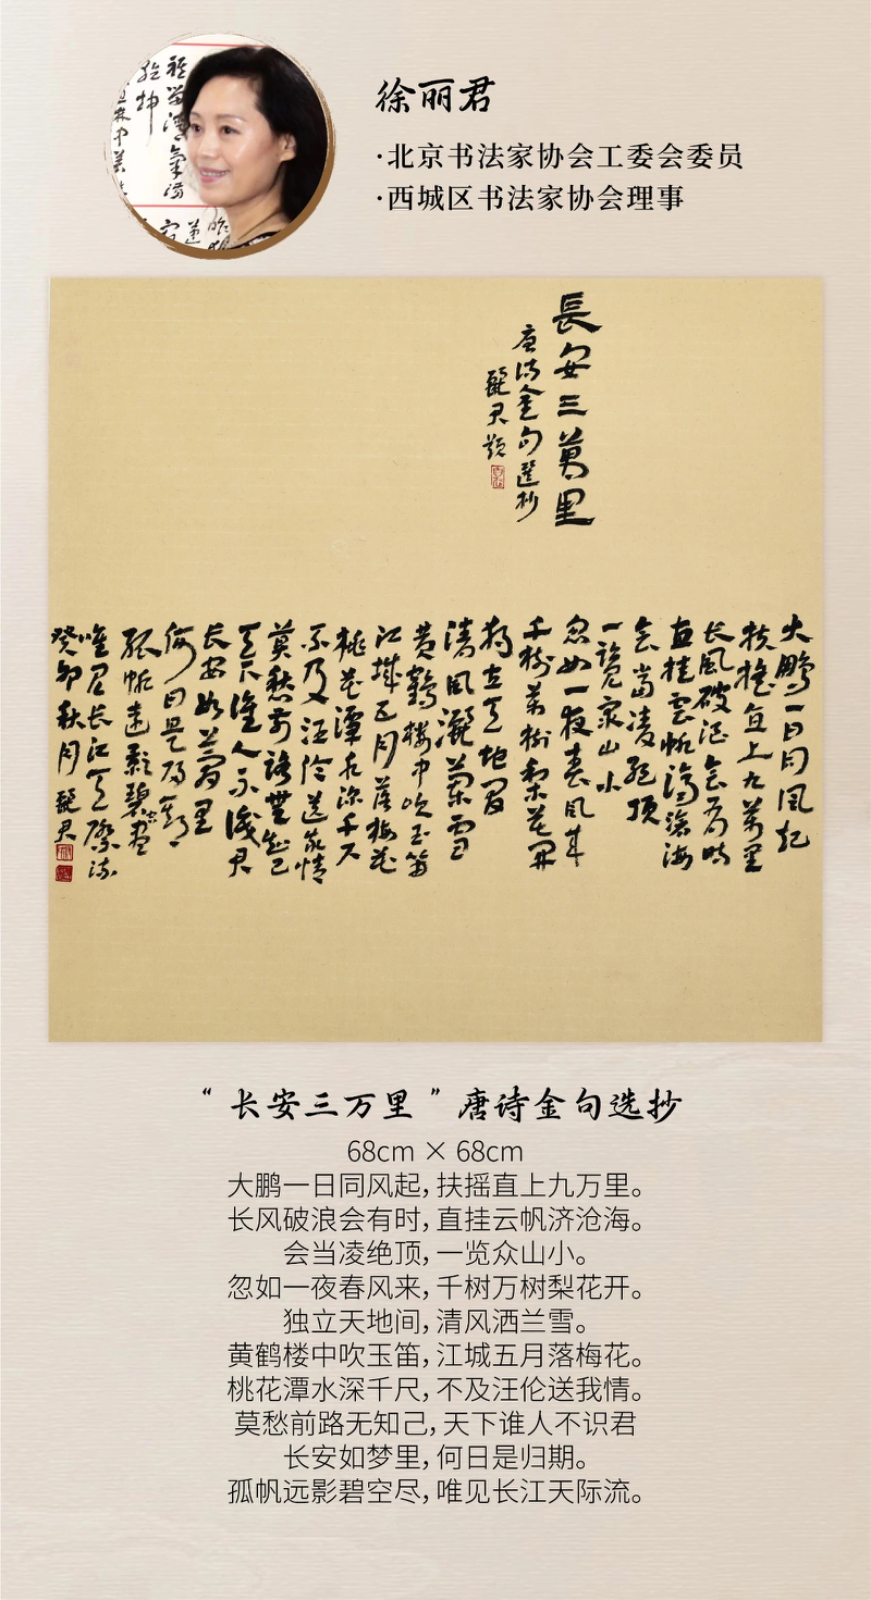 徐丽君
·北京书法家协会工委会委员
·西城区书法家协会理事
長安三萬里
唐詩金句選抄
麗君題
大鵬一日同風起
扶搖直上九萬里
长風破浪会有時
直挂雲帆濟滄海
会當凌絕頂
一覽衆山小
忽如一夜春風来
千樹萬樹梨花開
獨立天地間
清風灑蘭雪
黄鶴樓中吹玉笛
江城五月落梅花
桃花潭水深千尺
不及汪倫送我情
莫愁前路無知己
天下誰人不識君
长安如夢里
何日是歸期
孤帆遠影碧空盡
唯見长江天際流
癸卯秋月 麗君
“长安三万里”唐诗金句选抄
68cm × 68cm
大鹏一日同风起，扶摇直上九万里。
长风破浪会有时，直挂云帆济沧海。
会当凌绝顶，一览众山小。
忽如一夜春风来，千树万树梨花开。
独立天地间，清风洒兰雪。
黄鹤楼中吹玉笛，江城五月落梅花。
桃花潭水深千尺，不及汪伦送我情。
莫愁前路无知己，天下谁人不识君
长安如梦里，何日是归期。
孤帆远影碧空尽，唯见长江天际流。